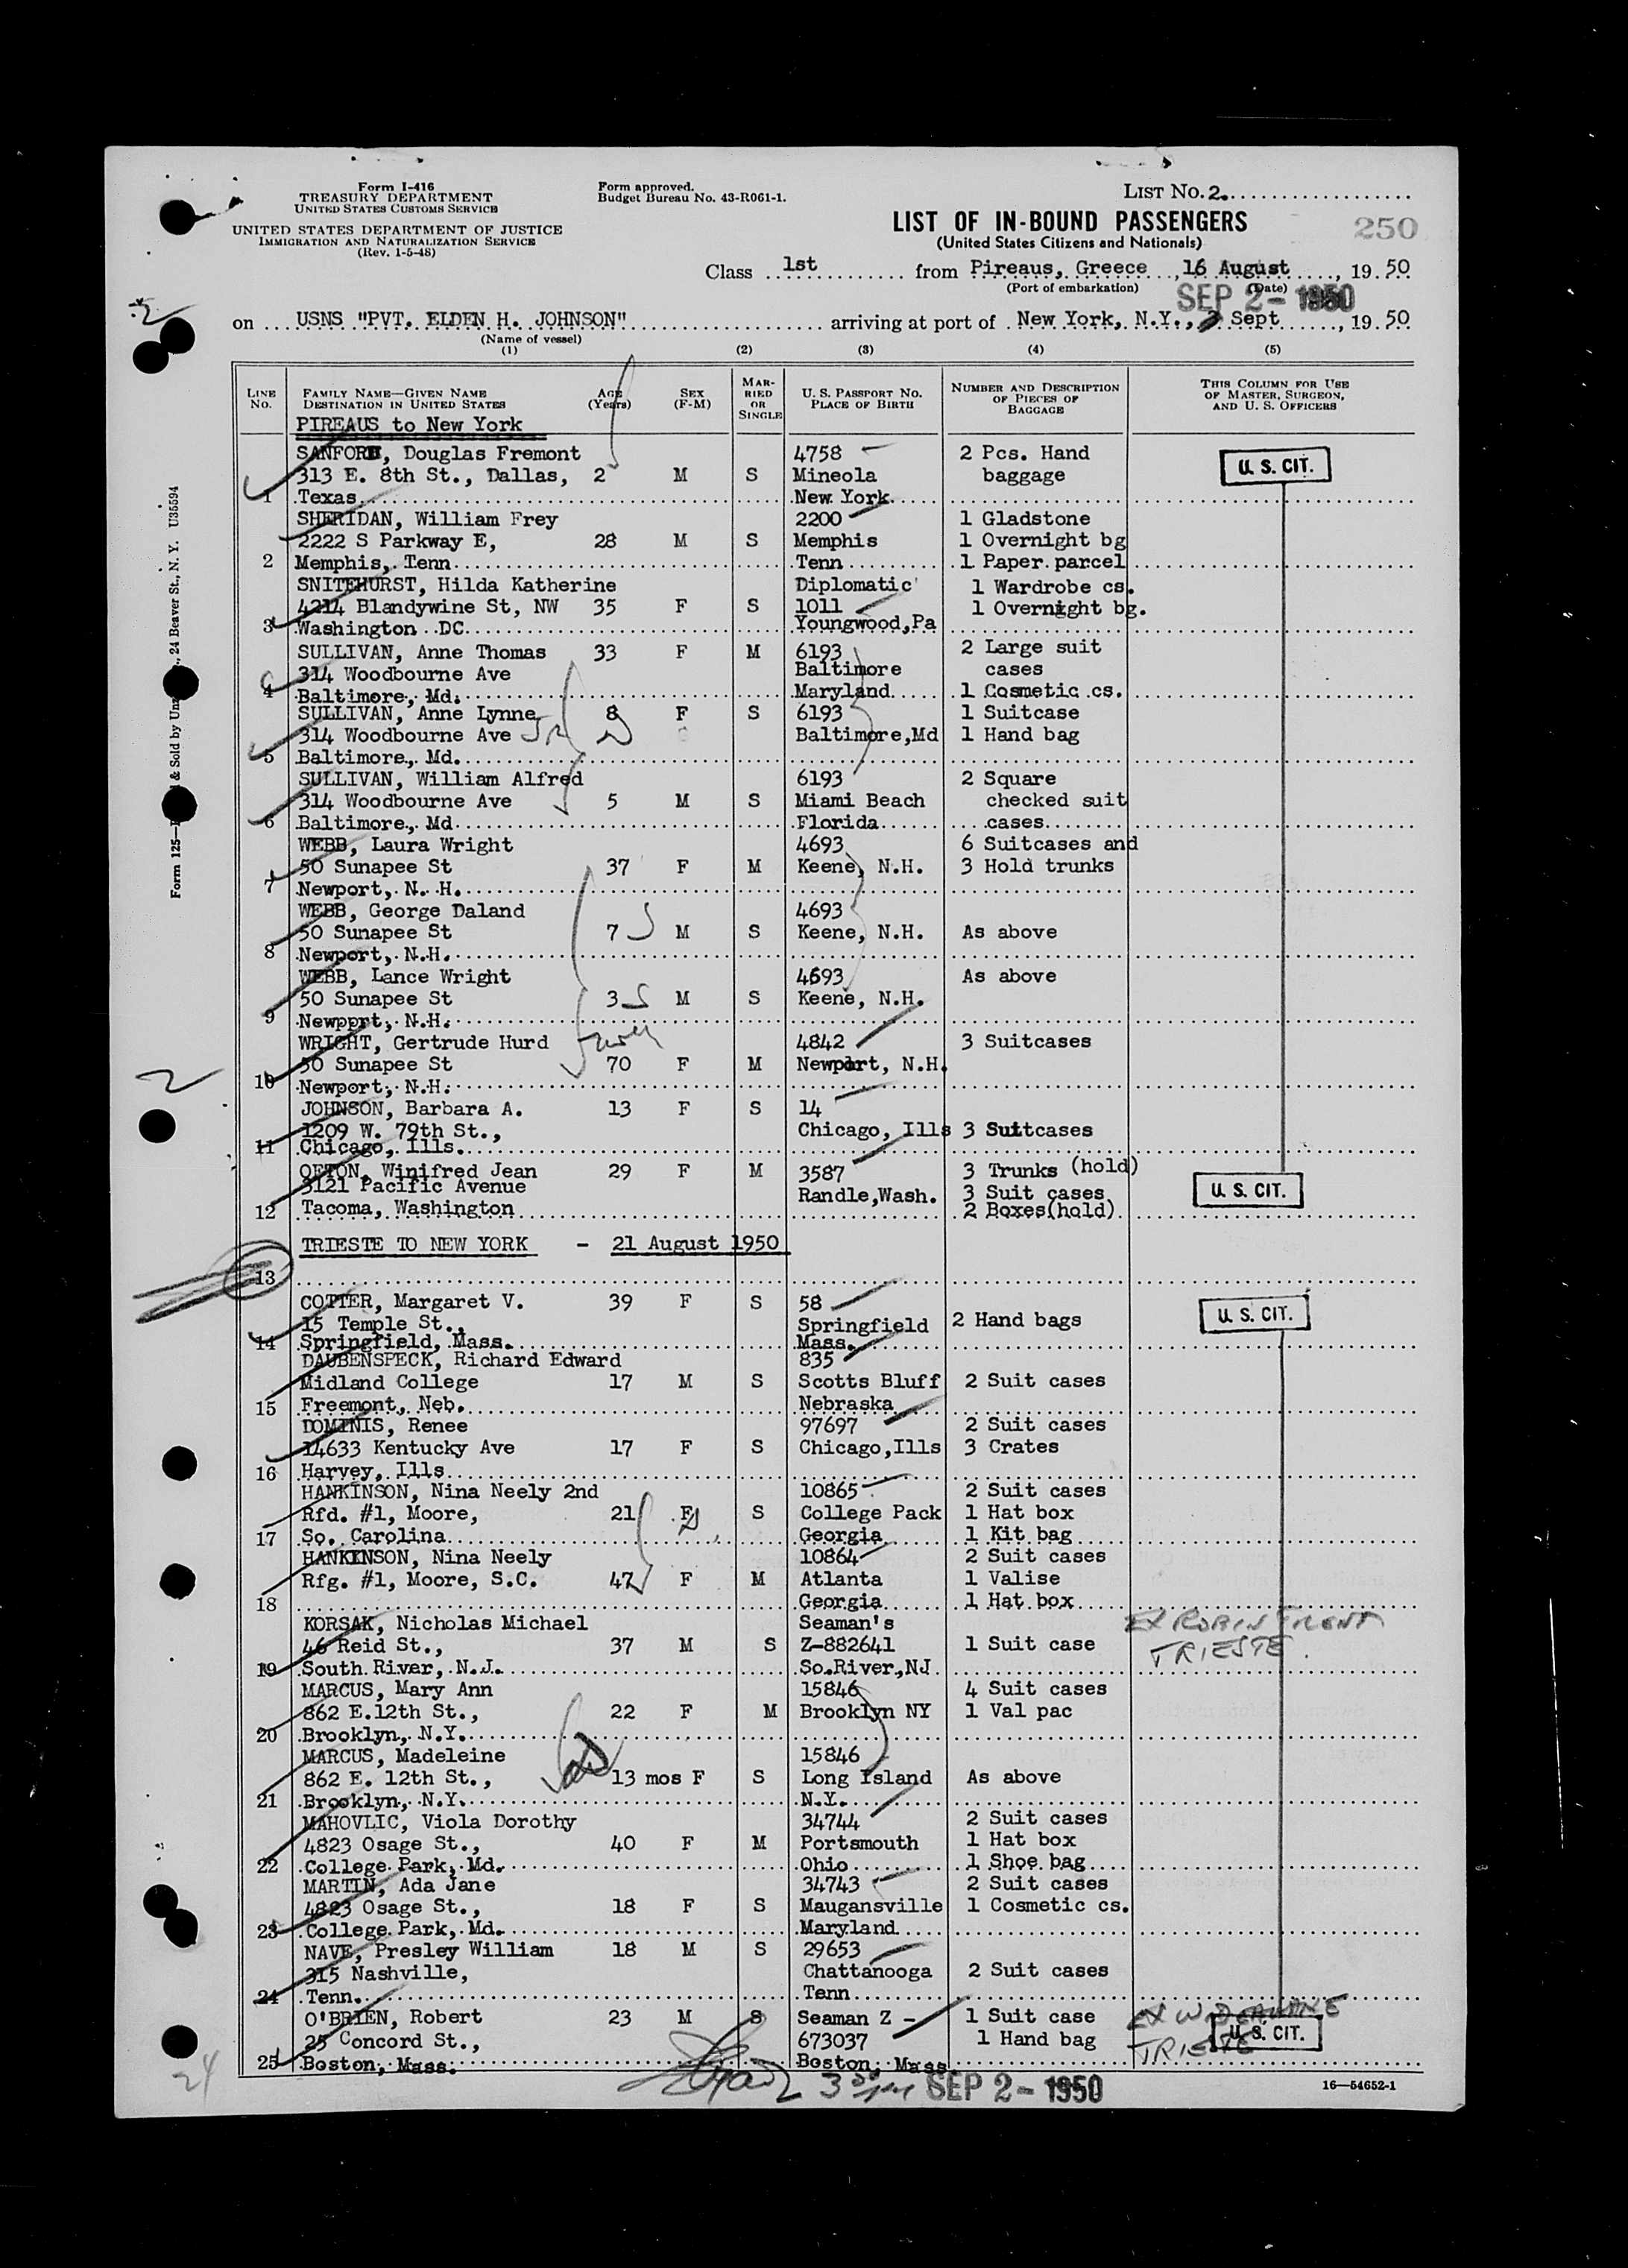 Form I-416
TREASURY DEPARTMENT
UNITED STATES CUSTOMS SERVICE
UNITED STATES DEPARTMENT OF JUSTICE
IMMIGRATION AND NATURALIZATION SERVICE
(Rev. 1-5-48)
Form approved.
Budget Bureau No. 43-R061-1.
LIST No. 2
LIST OF IN-BOUND PASSENGERS
(United States Citizens and Nationals)
250
Class 1st from Pireaus, Greece, 16 August, 1950
(Port of embarkation) (Date)
SEP 2- 1950
on USNS "PVT. ELDEN H. JOHNSON" arriving at port of New York, N.Y., Sept, 1950
(Name of vessel)
(1) (2) (3) (4) (5)
LINE No. FAMILY NAME—GIVEN NAME DESTINATION IN UNITED STATES AGE (Years) SEX (F-M) MARRIED OR SINGLE U. S. PASSPORT No. PLACE OF BIRTH NUMBER AND DESCRIPTION OF PIECES OF BAGGAGE THIS COLUMN FOR USE OF MASTER, SURGEON, AND U. S. OFFICERS
PIREAUS to New York
SANFORD, Douglas Fremont 4758 2 Pcs. Hand
313 E. 8th St., Dallas, 2 M S Mineola baggage U. S. CIT.
1 Texas New York
SHERIDAN, William Frey 2200 1 Gladstone
2222 S Parkway E, 28 M S Memphis 1 Overnight bg
2 Memphis, Tenn Tenn 1 Paper parcel
SNITEHURST, Hilda Katherine Diplomatic 1 Wardrobe cs.
4214 Blandywine St, NW 35 F S 1011 1 Overnight bg.
3 Washington DC Youngwood,Pa
SULLIVAN, Anne Thomas 33 F M 6193 2 Large suit
314 Woodbourne Ave Baltimore cases
4 Baltimore, Md. Maryland 1 Cosmetic cs.
SULLIVAN, Anne Lynne 8 F S 6193 1 Suitcase
314 Woodbourne Ave Baltimore,Md 1 Hand bag
5 Baltimore, Md.
SULLIVAN, William Alfred 6193 2 Square
314 Woodbourne Ave 5 M S Miami Beach checked suit
6 Baltimore, Md Florida cases
WEBB, Laura Wright 4693 6 Suitcases and
50 Sunapee St 37 F M Keene, N.H. 3 Hold trunks
7 Newport, N. H.
WEBB, George Daland 4693
50 Sunapee St 7 M S Keene, N.H. As above
8 Newport, N.H.
WEBB, Lance Wright 4693 As above
50 Sunapee St 3 M S Keene, N.H.
9 Newpprt, N.H.
WRIGHT, Gertrude Hurd 4842 3 Suitcases
50 Sunapee St 70 F M Newport, N.H.
10 Newport, N.H.
2
JOHNSON, Barbara A. 13 F S 14
1209 W. 79th St., Chicago, Ills 3 Suitcases
11 Chicago, Ills.
OFTON, Winifred Jean 29 F M 3587 3 Trunks (hold)
3121 Pacific Avenue Randle,Wash. 3 Suit cases U. S. CIT.
12 Tacoma, Washington 2 Boxes(hold)
TRIESTE TO NEW YORK - 21 August 1950
13
COTTER, Margaret V. 39 F S 58
15 Temple St., Springfield 2 Hand bags U. S. CIT.
14 Springfield, Mass. Mass.
DAUBENSPECK, Richard Edward 835
Midland College 17 M S Scotts Bluff 2 Suit cases
15 Freemont, Neb. Nebraska
DOMINIS, Renee 97697 2 Suit cases
14633 Kentucky Ave 17 F S Chicago,Ills 3 Crates
16 Harvey, Ills
HANKINSON, Nina Neely 2nd 10865 2 Suit cases
Rfd. #1, Moore, 21 F S College Pack 1 Hat box
17 So. Carolina Georgia 1 Kit bag
HANKINSON, Nina Neely 10864 2 Suit cases
Rfg. #1, Moore, S.C. 47 F M Atlanta 1 Valise
18 Georgia 1 Hat box
KORSAK, Nicholas Michael Seaman's EX ROBIN TRENT
46 Reid St., 37 M S Z-882641 1 Suit case TRIESTE.
19 South River, N.J. So.River,NJ
MARCUS, Mary Ann 15846 4 Suit cases
862 E.12th St., 22 F M Brooklyn NY 1 Val pac
20 Brooklyn, N.Y.
MARCUS, Madeleine 15846
862 E. 12th St., 13 mos F S Long Island As above
21 Brooklyn, N.Y. N.Y.
MAHOVLIC, Viola Dorothy 34744 2 Suit cases
4823 Osage St., 40 F M Portsmouth 1 Hat box
22 College Park, Md. Ohio 1 Shoe bag
MARTIN, Ada Jane 34743 2 Suit cases
4823 Osage St., 18 F S Maugansville 1 Cosmetic cs.
23 College Park, Md. Maryland
NAVE, Presley William 18 M S 29653
315 Nashville, Chattanooga 2 Suit cases
24 Tenn. Tenn
O'BRIEN, Robert 23 M S Seaman Z - 1 Suit case
25 Concord St., 673037 1 Hand bag TRIESTE U. S. CIT.
25 Boston, Mass. Boston, Mass
24
SEP 2- 1950
16—54652-1
Form 125— & Sold by , 24 Beaver St., N. Y. U35594